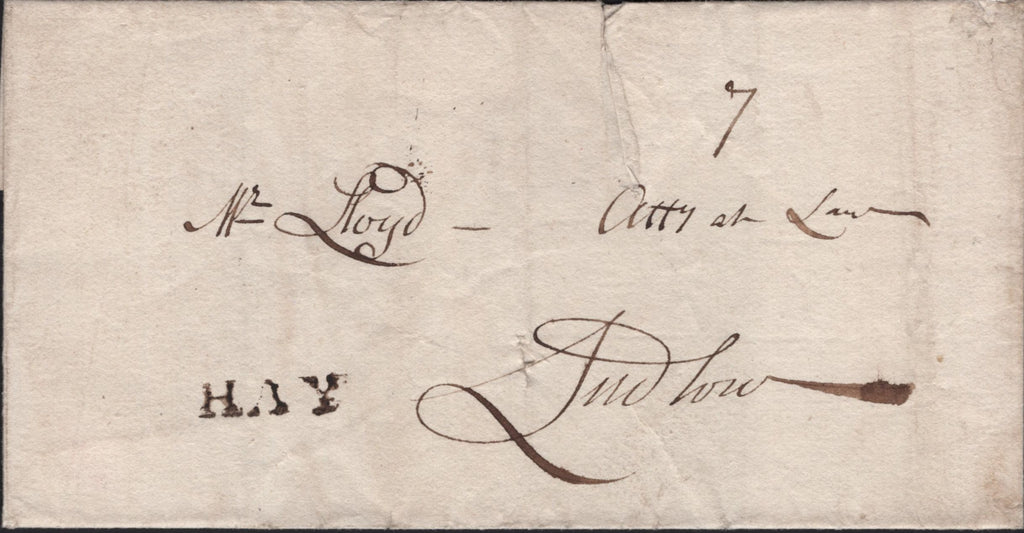 7
Mr Lloyd — Atty at Law
HAY Ludlow